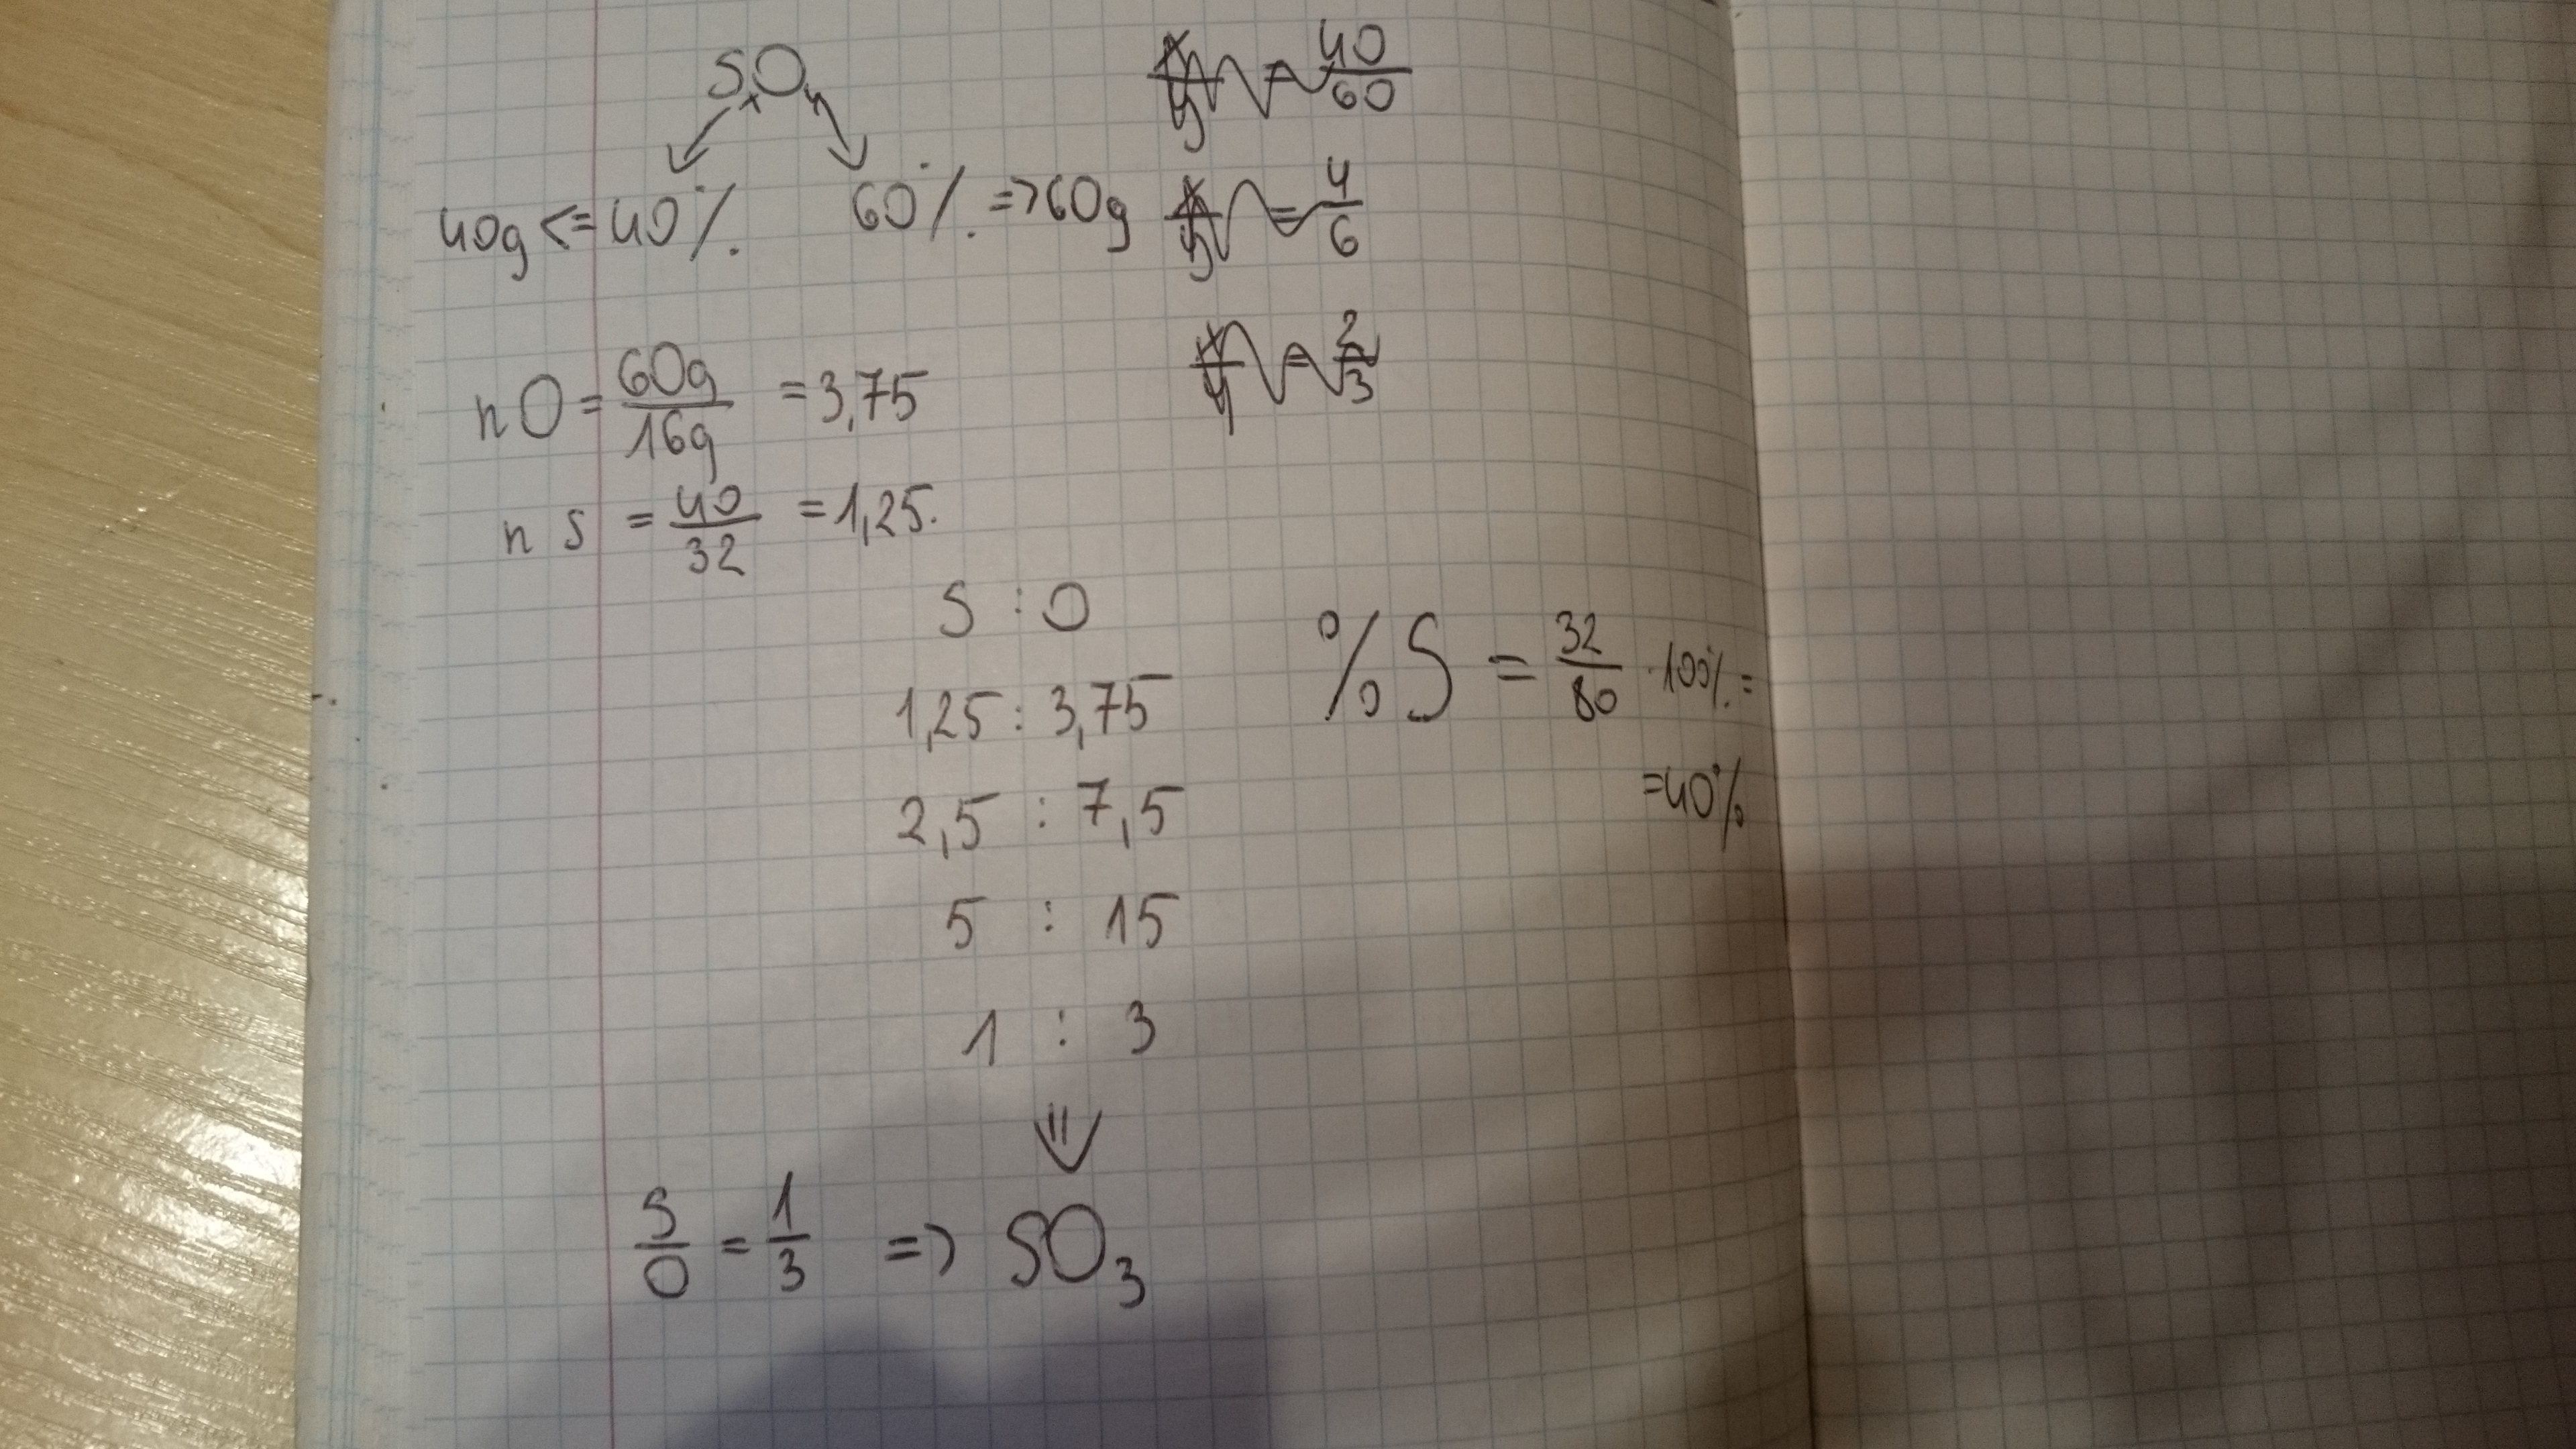 SxOy
40g <= 40% 60% => 60g
x/y = 40/60
x/y = 4/6
x/y = 2/3
nO = 60g/16g = 3,75
n S = 40/32 = 1,25.
S : O
1,25 : 3,75
2,5 : 7,5
5 : 15
1 : 3
⇓
S/O = 1/3 => SO3
%S = 32/80 · 100% =
= 40%